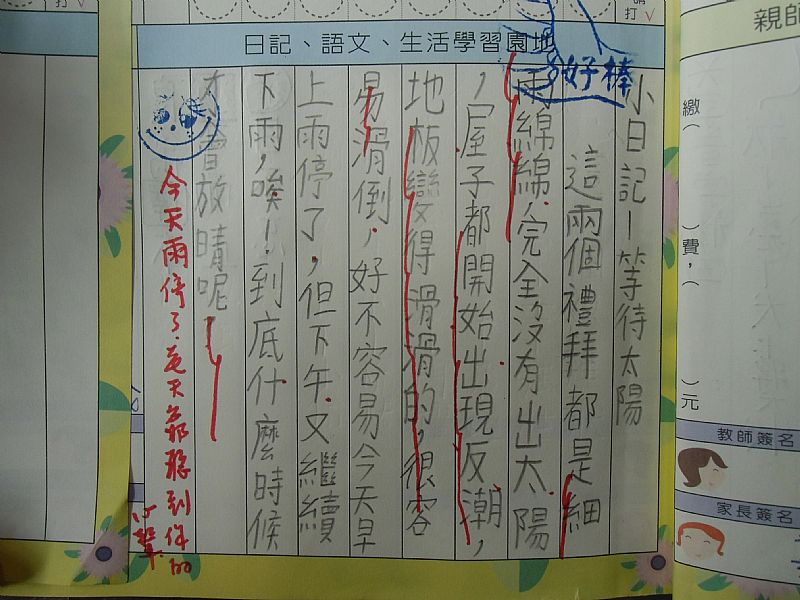 打√
日記、語文、生活學習園地
好棒
小日記-等待太陽
這兩個禮拜都是細
雨綿綿,完全沒有出太陽
,屋子都開始出現反潮,
地板變得滑滑的,很容
易滑倒,好不容易今天早
上雨停了,但下午又繼續
下雨,唉!到底什麼時候
才會放晴呢
今天雨停了,老天爺聽到你的
心聲
打√
親師
繳( )費,( )元
教師簽名
家長簽名